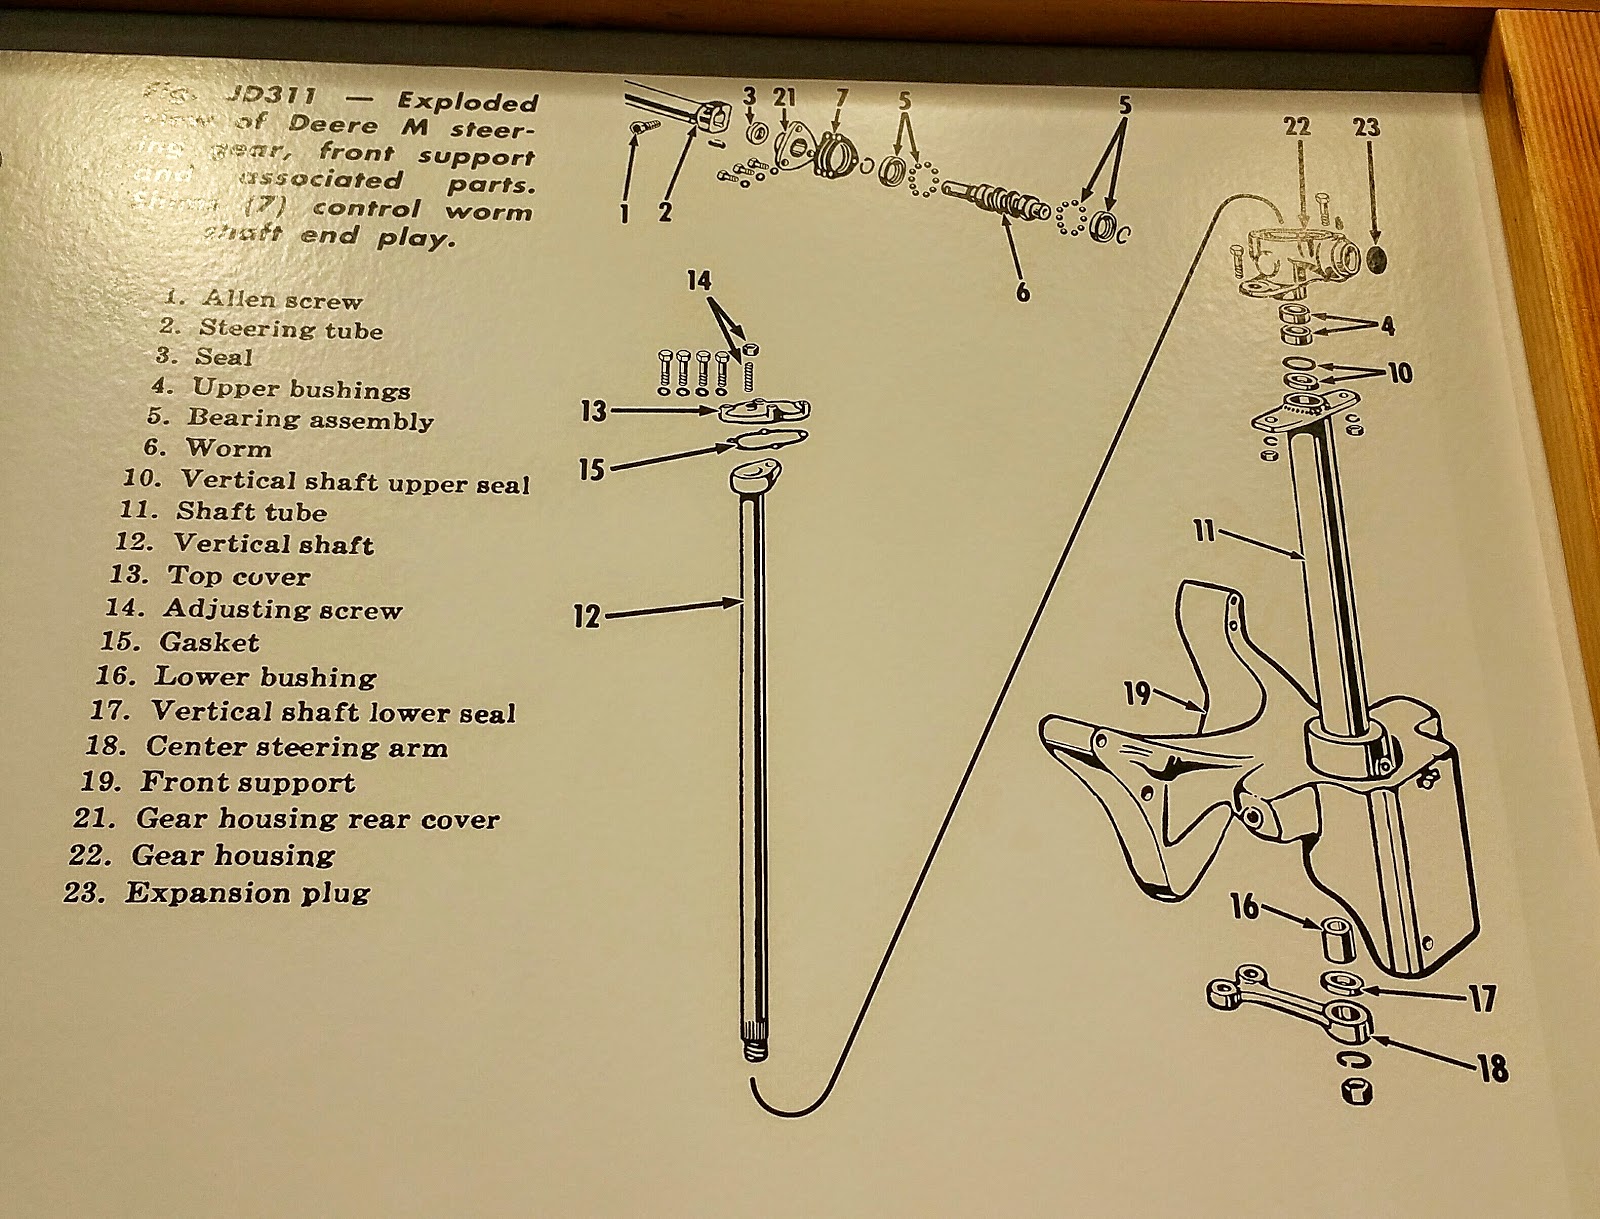 Fig. JD311 — Exploded
view of Deere M steer-
ing gear, front support
and associated parts.
Shims (7) control worm
shaft end play.
1. Allen screw
2. Steering tube
3. Seal
4. Upper bushings
5. Bearing assembly
6. Worm
10. Vertical shaft upper seal
11. Shaft tube
12. Vertical shaft
13. Top cover
14. Adjusting screw
15. Gasket
16. Lower bushing
17. Vertical shaft lower seal
18. Center steering arm
19. Front support
21. Gear housing rear cover
22. Gear housing
23. Expansion plug
3 21 7 5 5
22 23
1 2
6
14
4
10
13
15
11
12
19
16
17
18